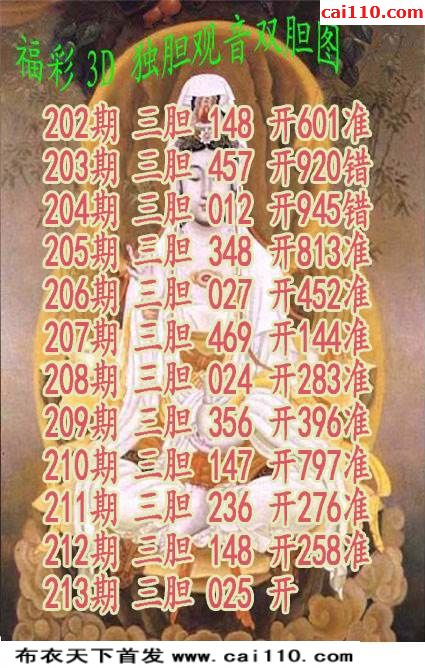 cai110.com
福彩 3D 独胆观音双胆图
202期 三胆 148 开601准
203期 三胆 457 开920错
204期 三胆 012 开945错
205期 三胆 348 开813准
206期 三胆 027 开452准
207期 三胆 469 开144准
208期 三胆 024 开283准
209期 三胆 356 开396准
210期 三胆 147 开797准
211期 三胆 236 开276准
212期 三胆 148 开258准
213期 三胆 025 开
布衣天下首发 www.cai110.com